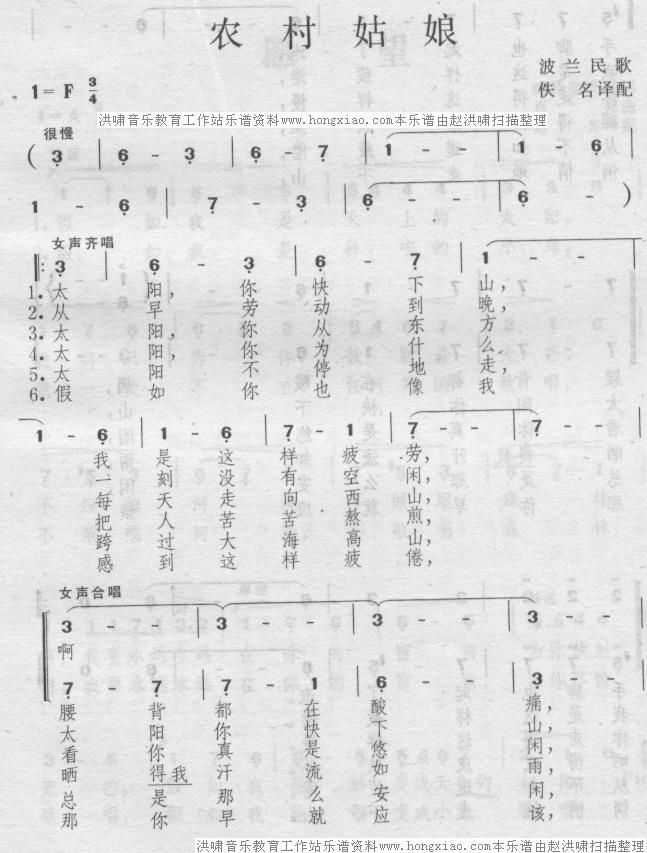 农村姑娘
波兰民歌
佚 名译配
1=F 3/4
洪啸音乐教育工作站乐谱资料www.hongxiao.com本乐谱由赵洪啸扫描整理
很慢
( 3 - - | 6 - 3 | 6 - - | 7 - - | 1 - - | 1 - 6 |
1 - 6 | 7 - 3 | 6 - - | 6 - - )
女声齐唱
3 | 6 - 3 | 6 - - | 7 - - | 1 - - |
1.太阳，你快下山，
2.从早劳动到晚，
3.太阳，你从东方
4.太阳你为什么
5.太阳不停地走，
6.假如你也像我，
1 - 6 | 1 - 6 | 7 - 1 | 7 - - | 7 - - |
我是这样疲劳，
一刻没有空闲，
每天走向西山，
把人苦苦熬煎，
跨过大海高山，
感到这样疲倦，
女声合唱
3 - - | 3 - - | 3 - - | 3 - - |
啊
7 - 7 | 7 - 1 | 6 - - | 3 - - |
腰背都在酸痛，
太阳你快下山，
看你真是悠闲，
晒得我汗流如雨，
总是那么安闲，
那你早就应该，
洪啸音乐教育工作站乐谱资料www.hongxiao.com本乐谱由赵洪啸扫描整理